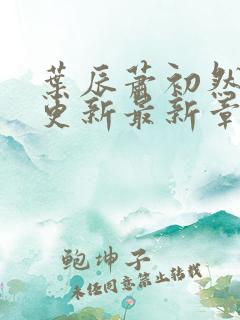 葉辰蕭初然
更新最新章
鲍坤子
未经同意禁止转载